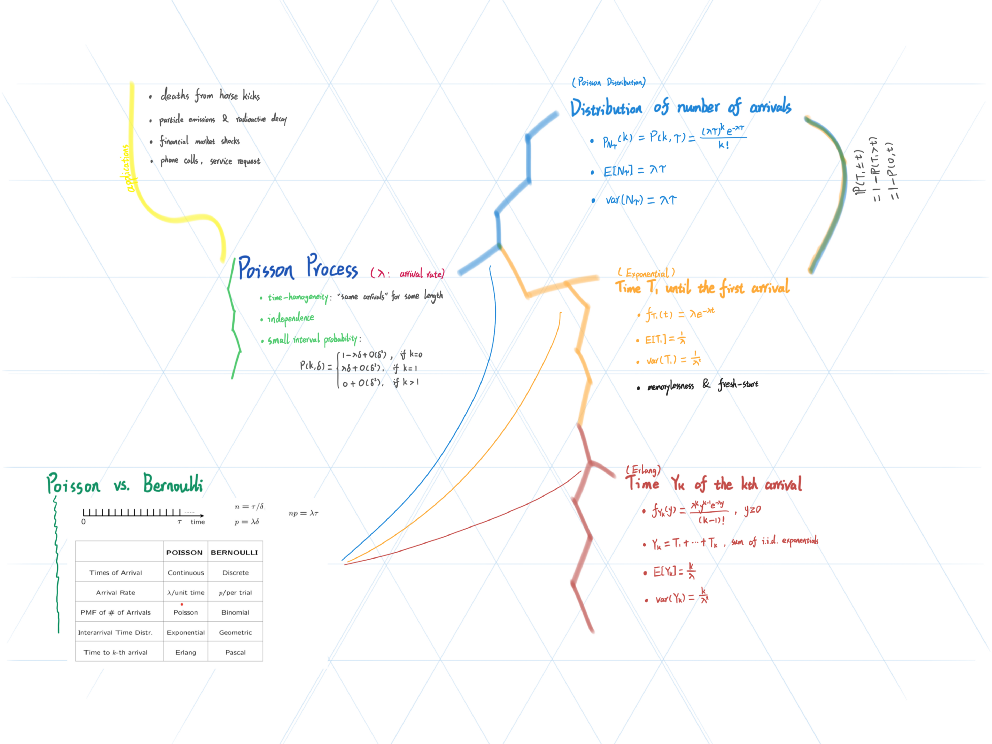 applications
• deaths from horse kicks
• particle emissions & radioactive decay
• financial market shocks
• phone calls, service request
Poisson Process (λ: arrival rate)
• time-homogeneity: "same arrivals" for same length
• independence
• small interval probability:
P(k,δ) = { 1-λδ+O(δ²), if k=0
λδ+O(δ²), if k=1
0+O(δ²), if k>1
(Poisson Distribution)
Distribution of number of arrivals
• P_{Nτ}(k) = P(k,τ) = (λτ)^k e^{-λτ} / k!
• E[Nτ] = λτ
• var(Nτ) = λτ
P(T₁≤t)
= 1-P(T₁>t)
= 1-P(0,t)
(Exponential)
Time T₁ until the first arrival
• f_{T₁}(t) = λe^{-λt}
• E[T₁] = 1/λ
• var(T₁) = 1/λ²
• memorylessness & fresh-start
(Erlang)
Time Yk of the kth arrival
• f_{Yk}(y) = λ^k y^{k-1} e^{-λy} / (k-1)!, y≥0
• Yk = T₁+⋯+Tk, sum of i.i.d. exponentials
• E[Yk] = k/λ
• var(Yk) = k/λ²
Poisson vs. Bernoulli
0 τ time
n = τ/δ
p = λδ
np = λτ
POISSON BERNOULLI
Times of Arrival Continuous Discrete
Arrival Rate λ/unit time p/per trial
PMF of # of Arrivals Poisson Binomial
Interarrival Time Distr. Exponential Geometric
Time to k-th arrival Erlang Pascal